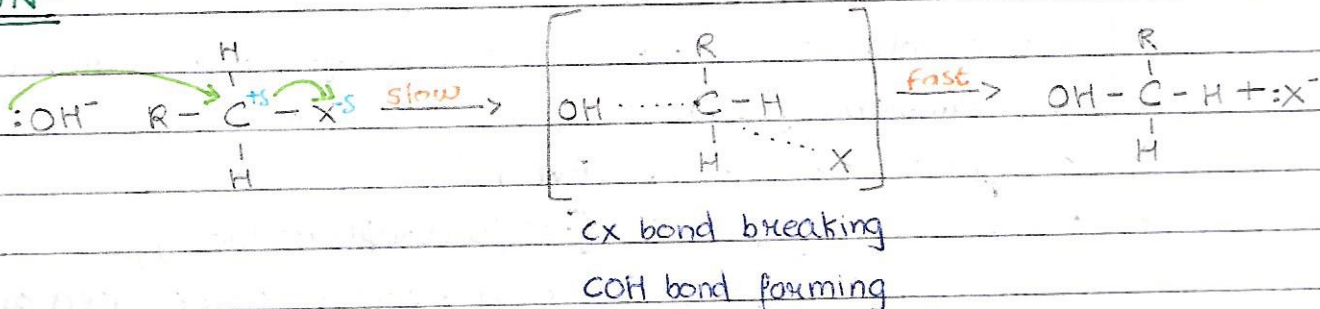 H R R
:OH⁻ R - C +δ - X -δ slow OH ...... C - H fast OH - C - H + :X⁻
H H X H
CX bond breaking
COH bond forming